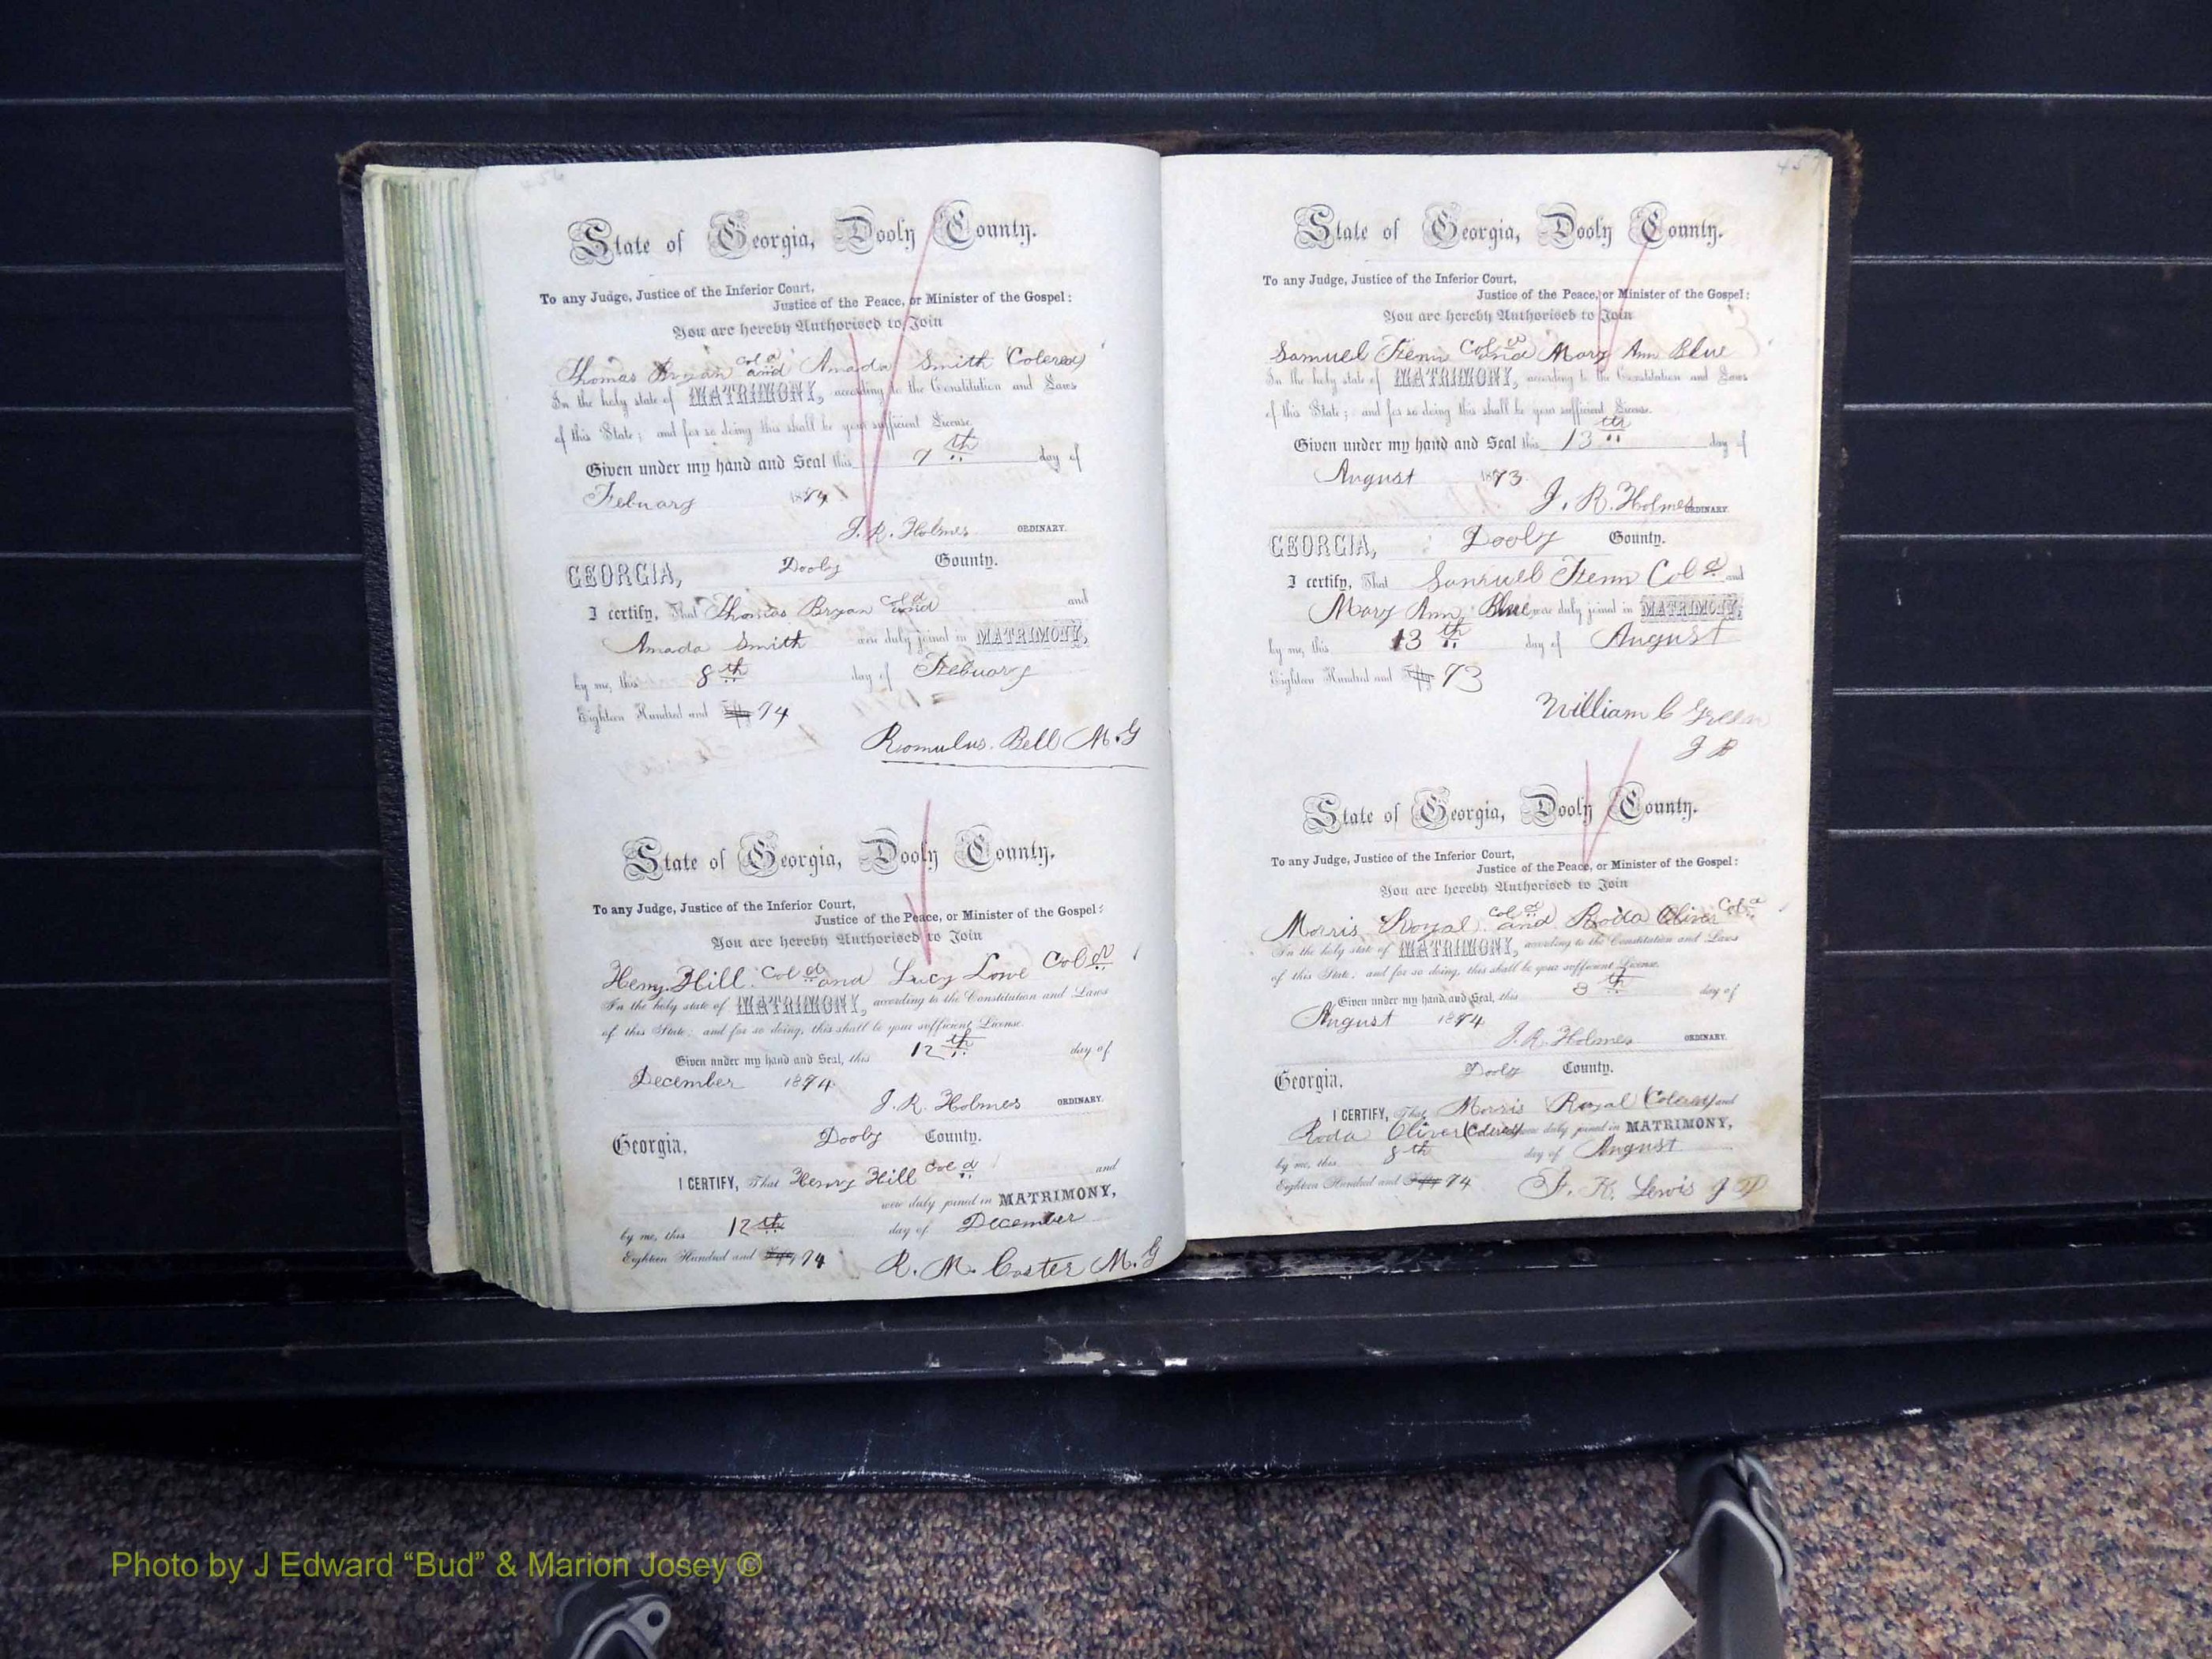 456
State of Georgia, Dooly County.
To any Judge, Justice of the Inferior Court,
Justice of the Peace, or Minister of the Gospel:
You are hereby Authorised to Join
Thomas Bryan Col d and Amada Smith (Colered)
In the holy state of MATRIMONY, according to the Constitution and Laws
of this State; and for so doing this shall be your sufficient License.
Given under my hand and Seal this 7th day of
Febuary 1874
J. R. Holmes ORDINARY.
GEORGIA, Dooly County.
I certify, That Thomas Bryan Col d and and
Amada Smith were duly joined in MATRIMONY,
by me, this 8th day of Febuary
Eighteen Hundred and Fifty 74
Romulus. Bell M.G
State of Georgia, Dooly County.
To any Judge, Justice of the Inferior Court,
Justice of the Peace, or Minister of the Gospel:
You are hereby Authorised to Join
Henry Hill Col d and Lucy Lowe Col d
In the holy state of MATRIMONY, according to the Constitution and Laws
of this State; and for so doing, this shall be your sufficient License.
Given under my hand and Seal, this 12th day of
December 1874
J. R. Holmes ORDINARY.
Georgia, Dooly County.
I CERTIFY, That Henry Hill Col d and
were duly joined in MATRIMONY,
by me, this 12th day of December
Eighteen Hundred and Fifty 74
R. M. Coster M.G
457
State of Georgia, Dooly County.
To any Judge, Justice of the Inferior Court,
Justice of the Peace, or Minister of the Gospel:
You are hereby Authorised to Join
Samuel Fenn Col d and Mary Ann Blue
In the holy state of MATRIMONY, according to the Constitution and Laws
of this State; and for so doing this shall be your sufficient License.
Given under my hand and Seal this 13th day of
August 1873
J. R. Holmes ORDINARY.
GEORGIA, Dooly County.
I certify, That Samuel Fenn Col d and
Mary Ann Blue were duly joined in MATRIMONY,
by me, this 13th day of August
Eighteen Hundred and Fifty 73
William C Green
J P
State of Georgia, Dooly County.
To any Judge, Justice of the Inferior Court,
Justice of the Peace, or Minister of the Gospel:
You are hereby Authorised to Join
Morris Royal Col d and Roda Oliver Col d
In the holy state of MATRIMONY, according to the Constitution and Laws
of this State, and for so doing, this shall be your sufficient License.
Given under my hand and Seal, this 8th day of
August 1874
J. R. Holmes ORDINARY.
Georgia. Dooly County.
I CERTIFY, That Morris Royal (Colered) and
Roda Oliver (Colered) were duly joined in MATRIMONY,
by me, this 8th day of August
Eighteen Hundred and Fifty 74 F. K. Lewis J P
Photo by J Edward “Bud” & Marion Josey ©